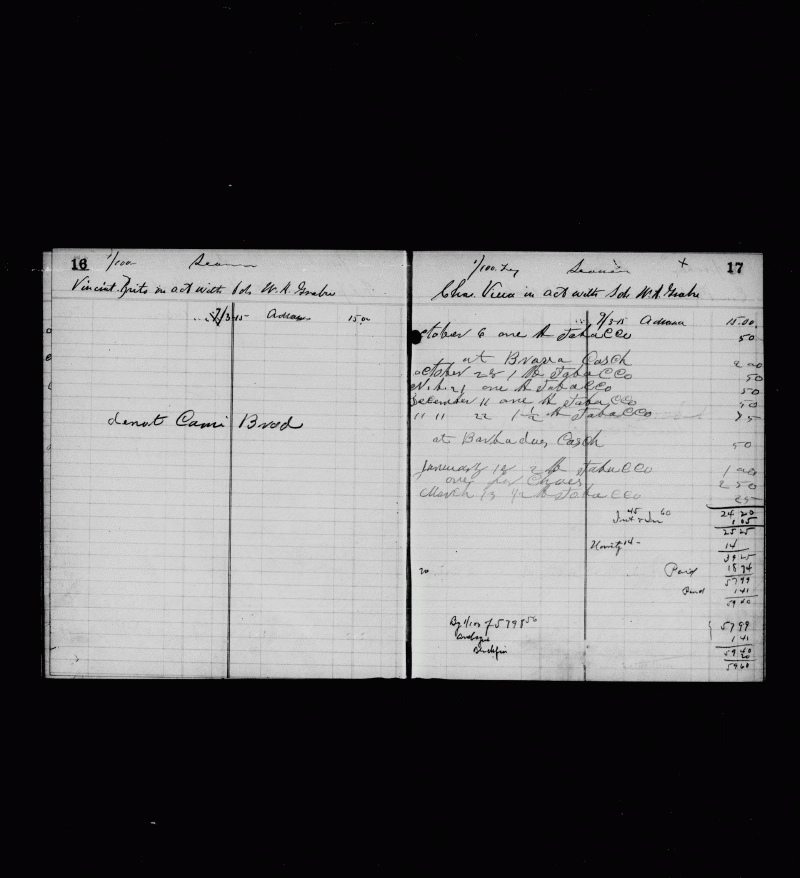 16 1/100 Seaman
Vincent Brito in act with Sch W. A. Grabu
9/3-15 Advance 15.00
denot Cami Brod
1/100. Lay Seaman x 17
Chas. Viera in act with Sch W. A. Grabu
9/3-15 Advance 15.00
October 6 one lb tabaCCo 50
at Brava Casch 2 00
october 28 1 lb tabaCCo 50
one lb tabaCCo 50
December 11 one lb tabaCCo 50
" " 22 1 1/2 lb tabaCCo 75
at Barbadues Casch 50
January 18 2 lb tabaCCo 1 00
one per Choes 2 50
March 13 1/2 lb tabaCCo 25
24 20
45 60
1.05
25 25
14- 14
39 25
20 Paid 18 74
57 99
Paid 1 41
59 40
By 1/100 of 5798 56 57 99
1 41
59.40
20
59 60